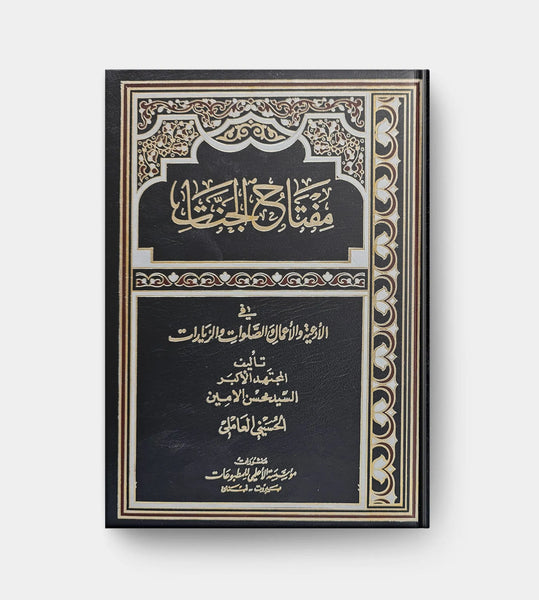 مفتاح الجنات
في
الأدعية والأعمال والصلوات والزيارات
تأليف
المجتهد الأكبر
السيد محسن الأمين
الحسيني العاملي
منشورات
مؤسسة الأعلمي للمطبوعات
بيروت - لبنان